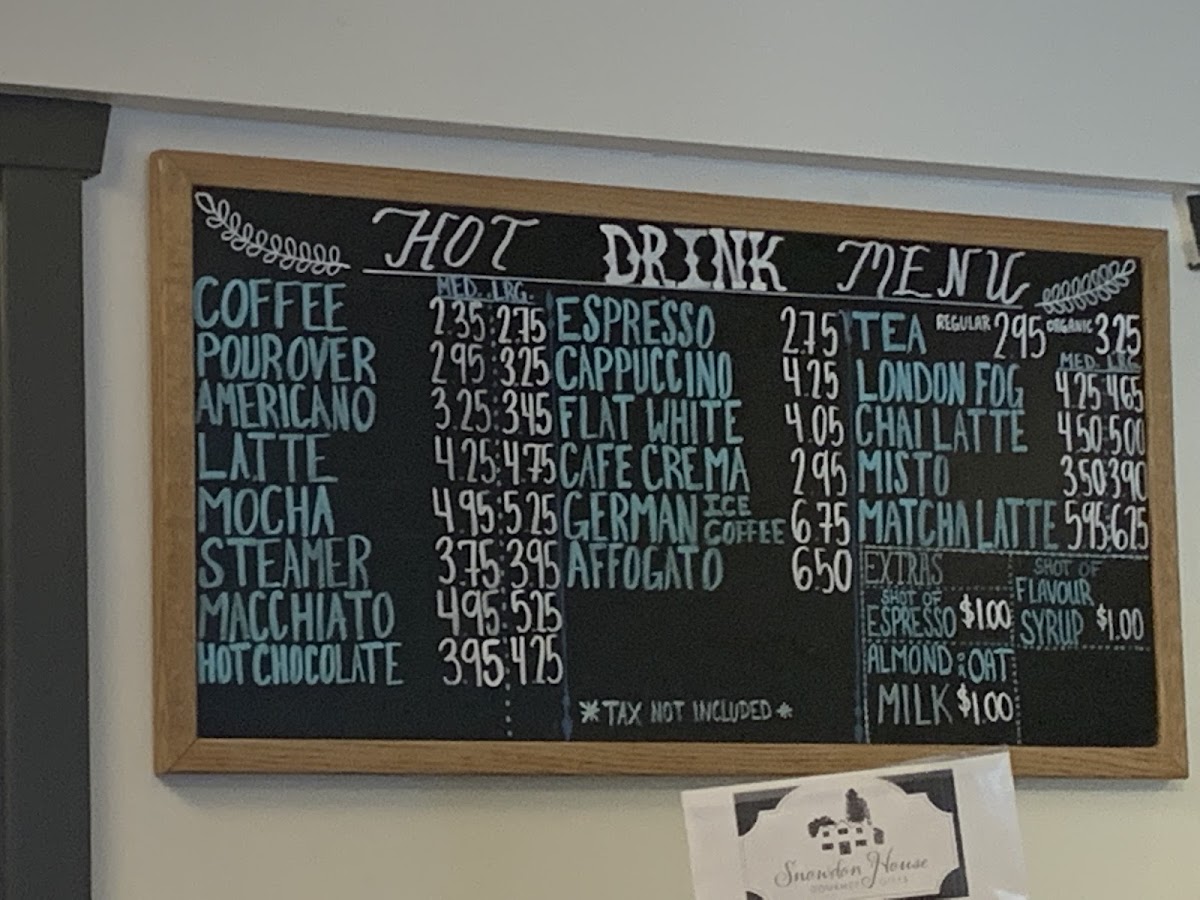 HOT DRINK MENU
MED. LRG.
COFFEE 2.35 2.75
POUROVER 2.95 3.25
AMERICANO 3.25 3.45
LATTE 4.25 4.75
MOCHA 4.95 5.25
STEAMER 3.75 3.95
MACCHIATO 4.95 5.25
HOT CHOCOLATE 3.95 4.25
ESPRESSO 2.75
CAPPUCCINO 4.25
FLAT WHITE 4.05
CAFE CREMA 2.95
GERMAN ICE COFFEE 6.75
AFFOGATO 6.50
*TAX NOT INCLUDED*
TEA REGULAR 2.95 ORGANIC 3.25
MED. LRG.
LONDON FOG 4.25 4.65
CHAI LATTE 4.50 5.00
MISTO 3.50 3.90
MATCHA LATTE 5.95 6.25
EXTRAS
SHOT OF
ESPRESSO $1.00
ALMOND & OAT
MILK $1.00
SHOT OF
FLAVOUR
SYRUP $1.00
Snowdon House
GOURMET GIFTS